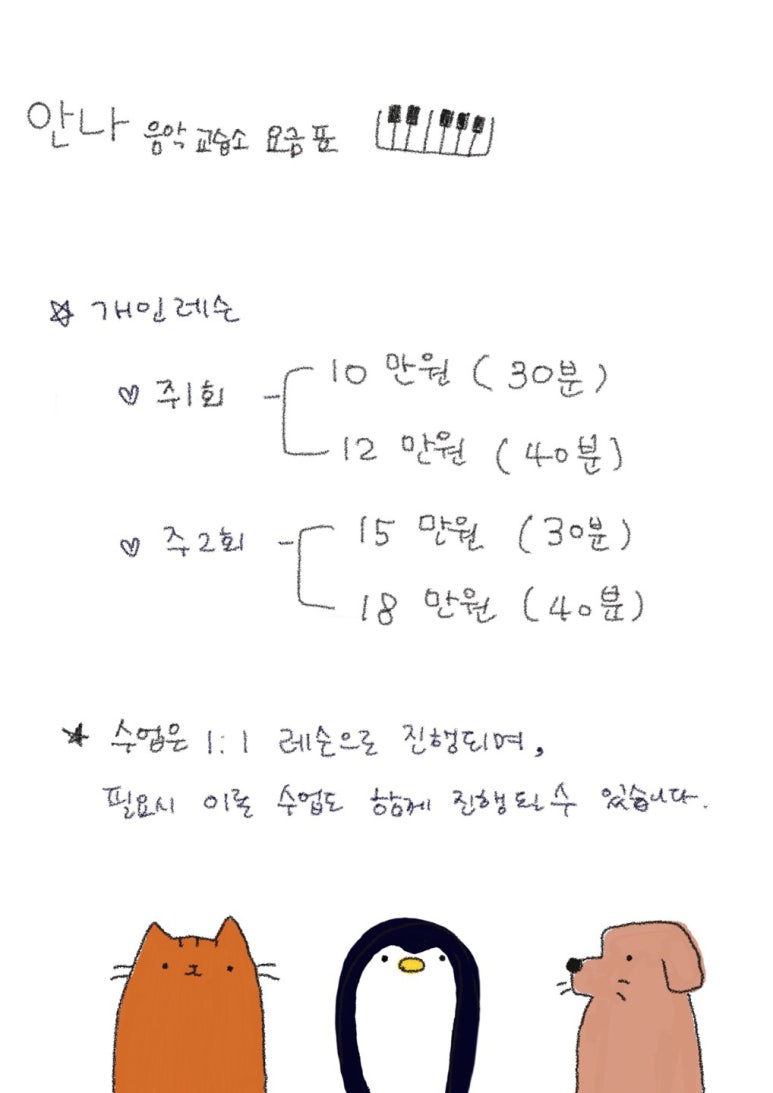 안나 음악 교습소 요금표
☆ 개인레슨
♡ 주1회
10 만원 (30분)
12 만원 (40분)
♡ 주2회
15 만원 (30분)
18 만원 (40분)
★ 수업은 1:1 레슨으로 진행되며,
필요시 이론 수업도 함께 진행될 수 있습니다.